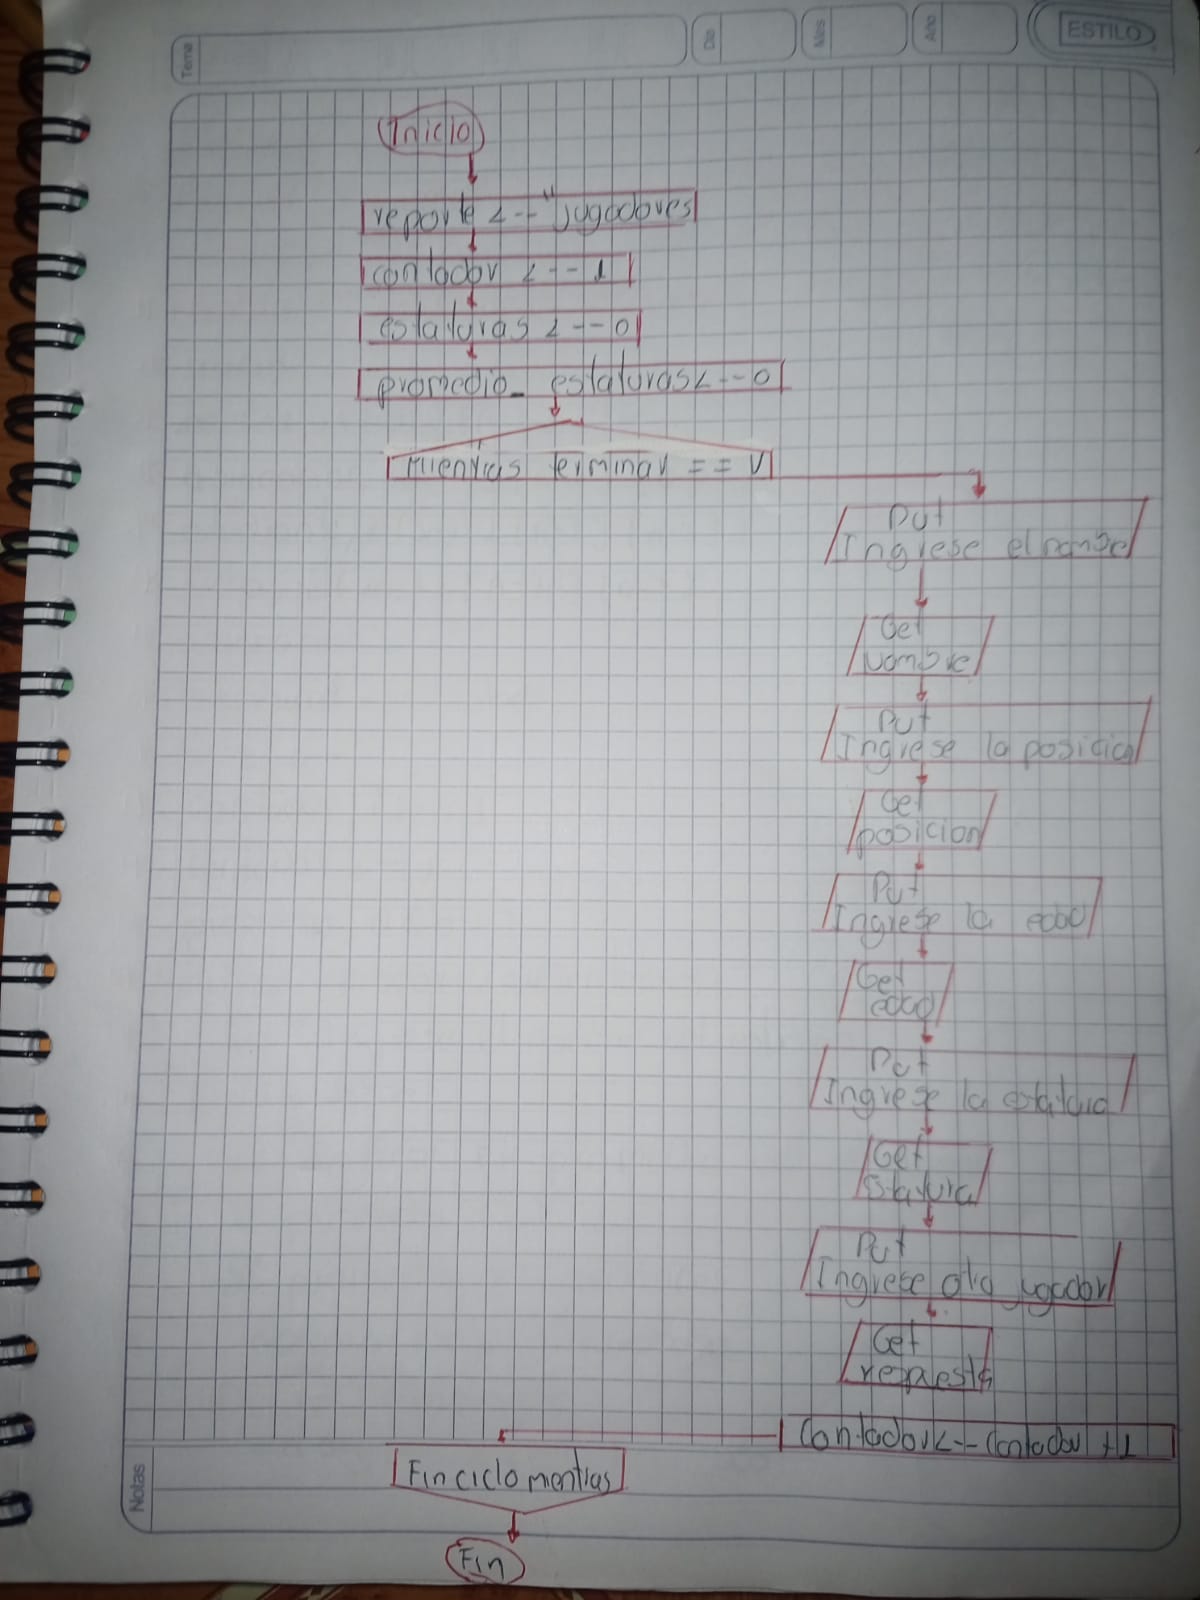 Tema
Dia
Mes
Año
ESTILO
Inicio
reporte <-- "jugadores
contador <-- 1
estaturas <-- 0
promedio_ estaturas<--0
mientras terminar == V
Put
Ingrese el nombre
Get
Nombre
Put
Ingrese la posicion
Get
posicion
Put
Ingrese la edad
Get
edad
Put
Ingrese la estatura
Get
Estatura
Put
Ingrese otro jugador
Get
respuesta
Contador<--Contador +1
Fin ciclo mentras
Notas
Fin